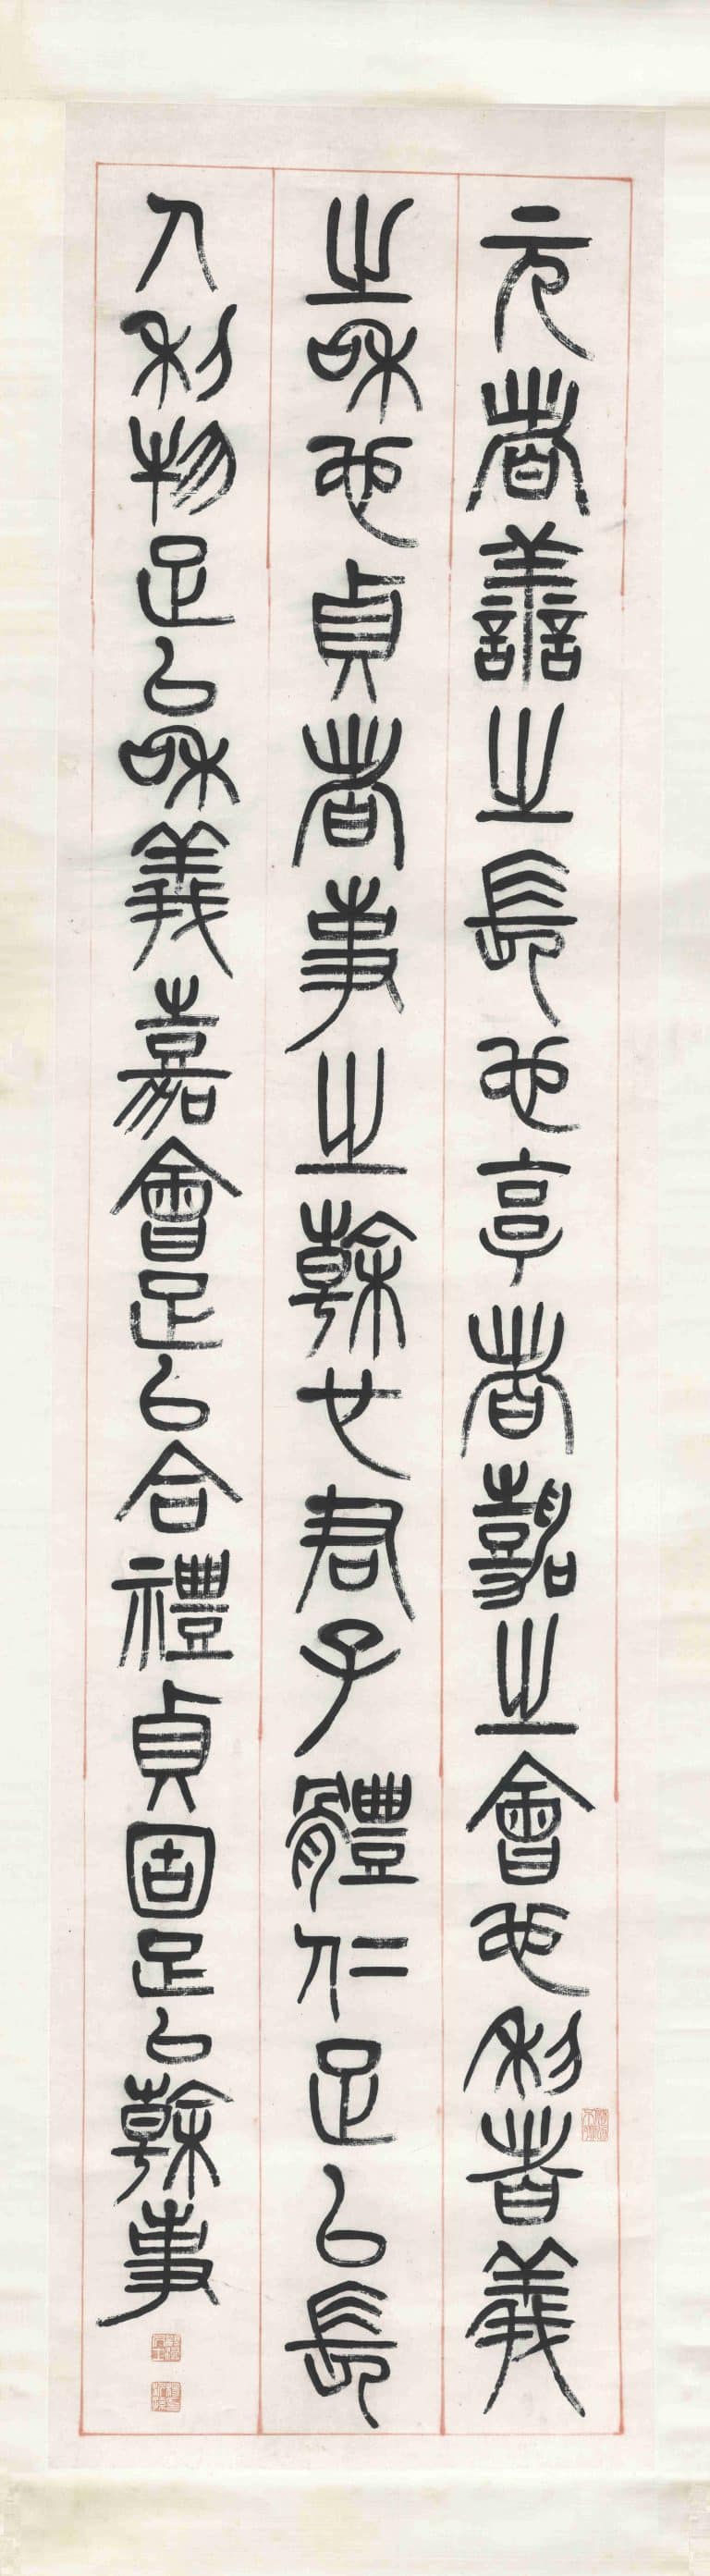 元者善之長也亨者嘉之會也利者義
之和也貞者事之幹也君子體仁足以長
人利物足以和義嘉會足以合禮貞固足以幹事